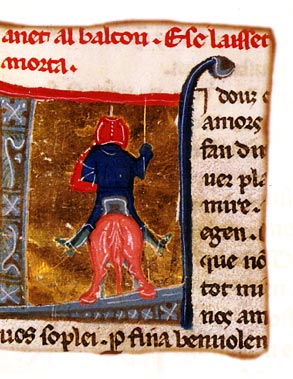 anet al balcon. E se laisset
morta.
dous c
amors
fan di
uer pla
mire.
egen.
que no
tot mi
nos am
uos soplei. p fina benuolen